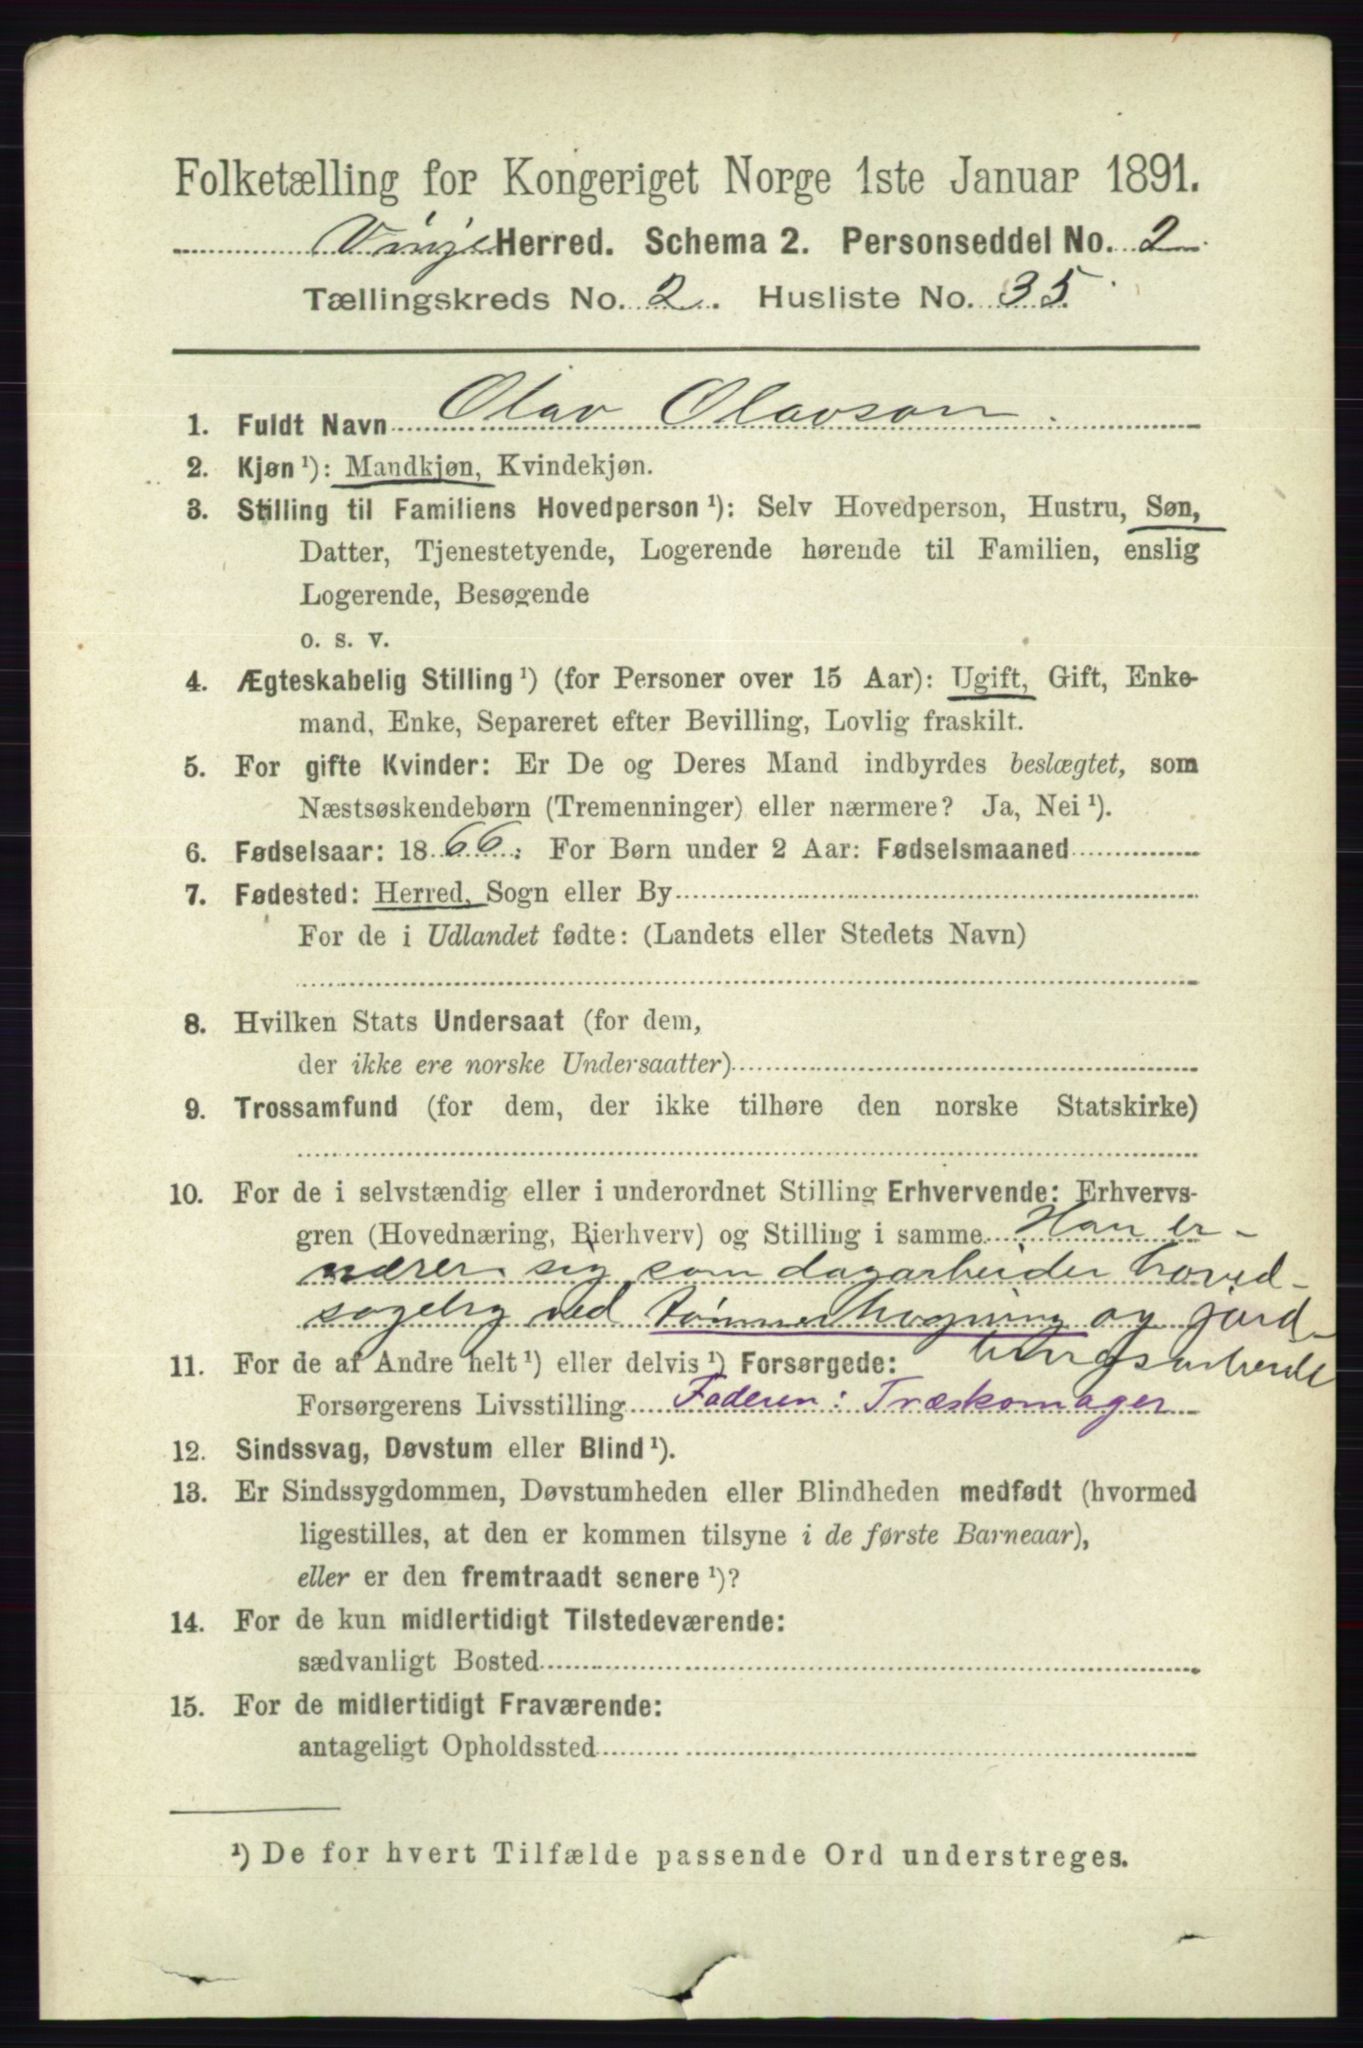 Folketælling for Kongeriget Norge 1ste Januar 1891.
Vinje Herred. Schema 2. Personseddel No. 2
Tællingskreds No. 2. Husliste No. 35
1. Fuldt Navn Olav Olavson
2. Kjøn ¹): Mandkjøn, Kvindekjøn.
3. Stilling til Familiens Hovedperson ¹): Selv Hovedperson, Hustru, Søn,
Datter, Tjenestetyende, Logerende hørende til Familien, enslig
Logerende, Besøgende
o. s. v.
4. Ægteskabelig Stilling ¹) (for Personer over 15 Aar): Ugift, Gift, Enke-
mand, Enke, Separeret efter Bevilling, Lovlig fraskilt.
5. For gifte Kvinder: Er De og Deres Mand indbyrdes beslægtet, som
Næstsøskendebørn (Tremenninger) eller nærmere? Ja, Nei ¹).
6. Fødselsaar: 1866: For Børn under 2 Aar: Fødselsmaaned
7. Fødested: Herred, Sogn eller By
For de i Udlandet fødte: (Landets eller Stedets Navn)
8. Hvilken Stats Undersaat (for dem,
der ikke ere norske Undersaatter)
9. Trossamfund (for dem, der ikke tilhøre den norske Statskirke)
10. For de i selvstændig eller i underordnet Stilling Erhvervende: Erhvervs-
gren (Hovednæring, Bierhverv) og Stilling i samme Han er-
nærer sig som dagarbeider hoved-
sagelig ved tømmerhogning og jord-
brugsarbeide
11. For de af Andre helt ¹) eller delvis ¹) Forsørgede:
Forsørgerens Livsstilling Faderen: Træskomager
12. Sindssvag, Døvstum eller Blind ¹).
13. Er Sindssygdommen, Døvstumheden eller Blindheden medfødt (hvormed
ligestilles, at den er kommen tilsyne i de første Barneaar),
eller er den fremtraadt senere ¹)?
14. For de kun midlertidigt Tilstedeværende:
sædvanligt Bosted
15. For de midlertidigt Fraværende:
antageligt Opholdssted
¹) De for hvert Tilfælde passende Ord understreges.